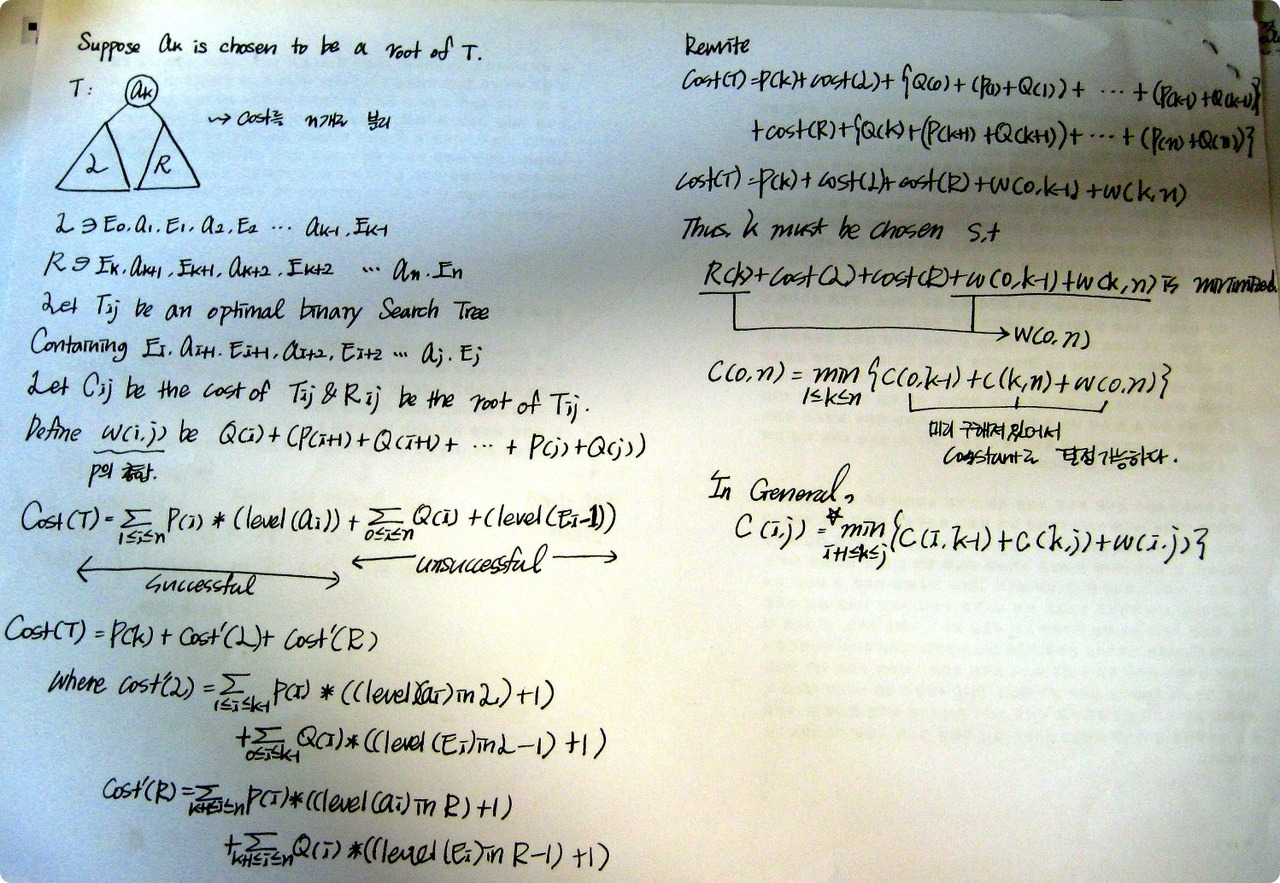 Suppose ak is chosen to be a root of T.
T: ak
↝ Cost를 n개로 분리
L R
L ∋ E0, a1, E1, a2, E2 ··· ak-1, Ek-1
R ∋ Ek, ak+1, Ek+1, ak+2, Ek+2 ··· an, En
Let Tij be an optimal binary Search Tree
Containing Ei, ai+1, Ei+1, ai+2, Ei+2 ··· aj, Ej
Let Cij be the cost of Tij & Rij be the root of Tij.
Define w(i,j) be Q(i) + (P(i+1) + Q(i+1) + ··· + P(j) + Q(j))
P의 총합.
Cost(T) = Σ 1≤i≤n P(i) * (level(ai)) + Σ 0≤i≤n Q(i) + (level(Ei-1))
successful unsuccessful
Cost(T) = P(k) + Cost'(L) + Cost'(R)
where cost'(L) = Σ 1≤i≤k-1 P(i) * ((level(ai) in L) +1)
+ Σ 0≤i≤k-1 Q(i) * ((level(Ei) in L -1) +1)
Cost'(R) = Σ k+1≤i≤n P(i) * ((level(ai) in R) +1)
+ Σ k+1≤i≤n Q(i) * ((level(Ei) in R-1) +1)
Rewrite
Cost(T) = P(k) + cost(L) + {Q(0) + (P(1) + Q(1)) + ··· + (P(k-1) + Q(k-1))}
+ cost(R) + {Q(k) + (P(k+1) + Q(k+1)) + ··· + (P(n) + Q(n))}
cost(T) = P(k) + cost(L) + cost(R) + w(0,k-1) + w(k,n)
Thus, k must be chosen s,t
P(k) + cost(L) + cost(R) + w(0,k-1) + w(k,n) is minimized.
w(0,n)
C(0,n) = min 1≤k≤n {C(0,k-1) + C(k,n) + w(0,n)}
미리 구해져 있어서
constant로 결정가능하다.
In General,
C(i,j) = * min i+1≤k≤j {C(i,k-1) + C(k,j) + w(i,j)}